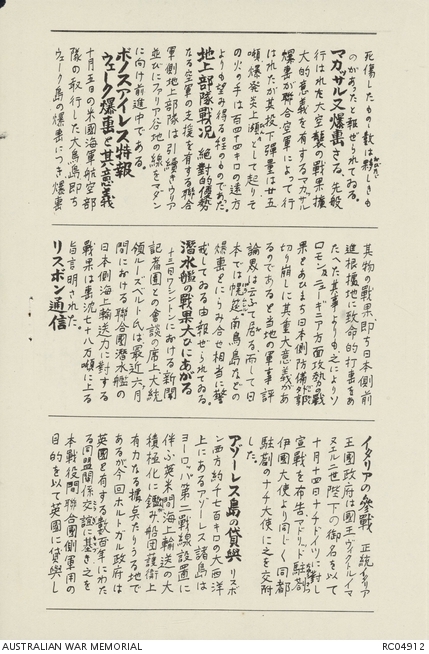 死傷したものゝ数は夥しきも
のがあったと報ぜられてゐる。
マカッサル又爆撃さる。先般
行はれた大空襲の戦果擴
大的意義を有するマカッサル
爆撃が聯合空軍によって行
はれたが其投下弾量は廿五
噸、爆発炎上濛々として起りそ
の火の手は百四十キロの遠方
よりも望み得る程のものであった。
地上部隊戦況 絶対的優勢
なる空軍の支援を有する聯合
軍側地上部隊は引続きウリア
並びにファリア谷地の線をマダン
に向け前進中である。
ボノスアイレス特報
ウェーク爆撃と其意義
十月五日の米国海軍航空部
隊の敢行した大鳥島即ち
ウェーク島の爆撃につき爆撃
其物の戦果即ち日本側前
進根據地に致命的打撃をあ
たへた其事よりも之によりソ
ロモン及ニューギニア方面攻勢の戦
果とあひまち日本側防備
切り崩しに其重大意義があ
るのであると当地の軍事評
論家は云って居る。而して日
本では幌筵、南鳥島などの
爆撃とにらみ合せ相当に警
戒してゐる由報ぜられてゐる。
潜水艦の戦果大ひにあがる
十三日ワシントンにおける新聞
記者團との会談の席上大統
領ルーズベルト氏は最近六ヶ月
間における聯合國潜水艦の
日本側海上輸送力に対する
戦果は轟沈七十八万噸に上る
旨言明された。
リスボン通信
イタリアの參戦 正統イタリア
王國政府は國王ヴィクトル、イマ
ヌエル二世陛下の御名を以て
十月十四日ナチドイツに対し
宣戦を布告、マドリッド駐剳
伊國大使より同じく同都
駐剳のナチ大使に之を交附
した。
アゾーレス島の貸與 リスボ
ン西方約千七百キロの大西洋
上にあるアゾーレス諸島は
ヨーロッパ第二戦線設置に
伴ふ英米間海上輸送の大
積極化に鑑み、船団護衛上
有力なる據点たりうる地で
あるが今回ポルトガル政府は
英國と有する数百年にわた
る同盟関係交誼に基き之を
本戦役間聯合國側軍用の
目的を以て英國に貸與し
AUSTRALIAN WAR MEMORIAL
RC04912